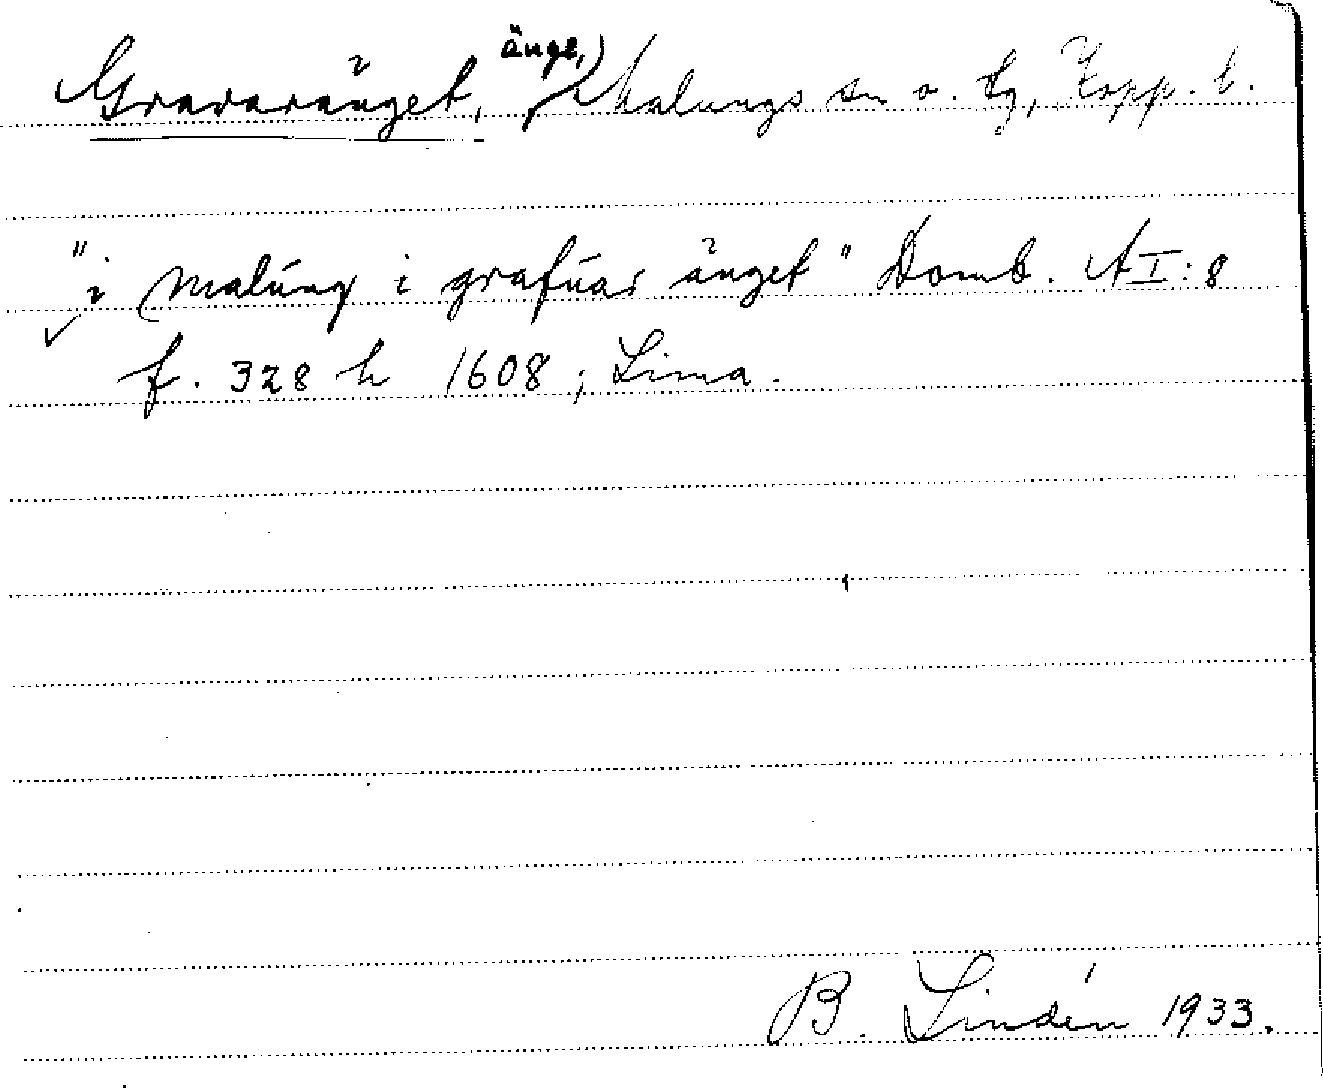 Gravaränget, änge, Malungs sn o. tg, Kopp. l.
"i Malúng i grafúar änget" Domb. AI:8
f. 328 h 1608; Lima.
B. Lindén 1933.